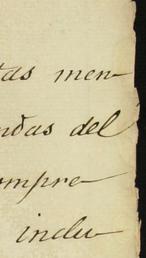 tas men-
ndas del
ompre-
inclu-